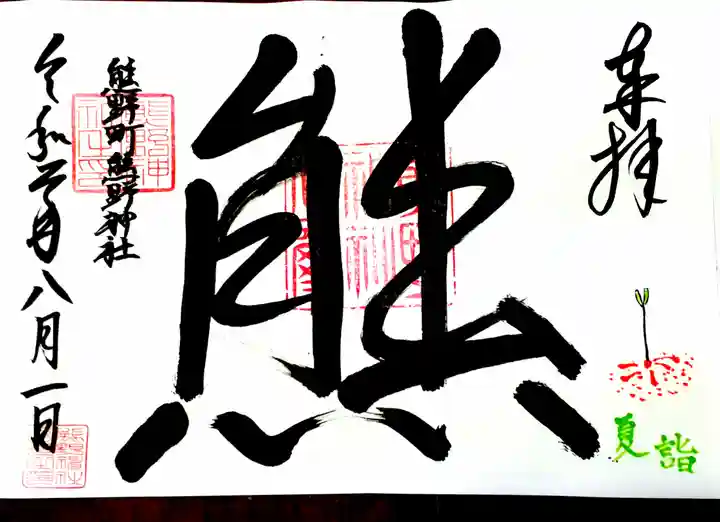 奉拝
夏詣
熊
熊野町熊野神社
令和二年八月一日